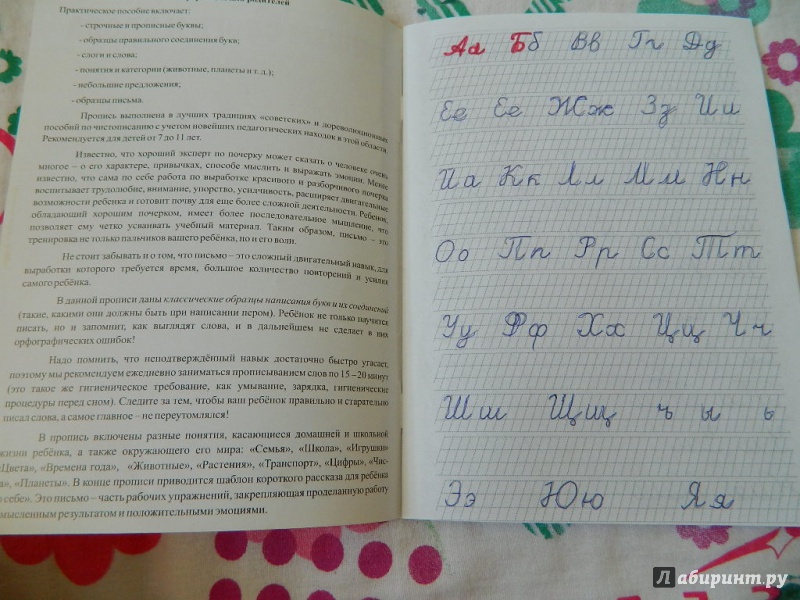 родителей
Практическое пособие включает:
- строчные и прописные буквы;
- образцы правильного соединения букв;
- слоги и слова;
- понятия и категории (животные, планеты и т. д.);
- небольшие предложения;
- образцы письма.
Пропись выполнена в лучших традициях «советских» и дореволюционных
пособий по чистописанию с учетом новейших педагогических находок в этой области.
Рекомендуется для детей от 7 до 11 лет.
Известно, что хороший эксперт по почерку может сказать о человеке очень
многое – о его характере, привычках, способе мыслить и выражать эмоции. Менее
известно, что сама по себе работа по выработке красивого и разборчивого почерка
воспитывает трудолюбие, внимание, упорство, усидчивость, расширяет двигательные
возможности ребенка и готовит почву для еще более сложной деятельности. Ребенок,
обладающий хорошим почерком, имеет более последовательное мышление, что
позволяет ему четко усваивать учебный материал. Таким образом, письмо – это
тренировка не только пальчиков вашего ребёнка, но и его воли.
Не стоит забывать и о том, что письмо – это сложный двигательный навык, для
выработки которого требуется время, большое количество повторений и усилия
самого ребёнка.
В данной прописи даны классические образцы написания букв и их соединений
(такие, какими они должны быть при написании пером). Ребёнок не только научится
писать, но и запомнит, как выглядят слова, и в дальнейшем не сделает в них
орфографических ошибок!
Надо помнить, что неподтверждённый навык достаточно быстро угасает,
поэтому мы рекомендуем ежедневно заниматься прописыванием слов по 15 – 20 минут
(это такое же гигиеническое требование, как умывание, зарядка, гигиенические
процедуры перед сном). Следите за тем, чтобы ваш ребёнок правильно и старательно
писал слова, а самое главное – не переутомлялся!
В пропись включены разные понятия, касающиеся домашней и школьной
жизни ребёнка, а также окружающего его мира: «Семья», «Школа», «Игрушки»
«Цвета», «Времена года», «Животные», «Растения», «Транспорт», «Цифры», «Чис-
ла», «Планеты». В конце прописи приводится шаблон короткого рассказа для ребёнка
себе». Это письмо – часть рабочих упражнений, закрепляющая проделанную работу
смысленным результатом и положительными эмоциями.
Аа Бб Вв Гг Дд
Ее Ёё Жж Зз Ии
Йй Кк Лл Мм Нн
Оо Пп Рр Сс Тт
Уу Фф Хх Цц Чч
Шш Щщ ъ ы ь
Ээ Юю Яя
Лабиринт.ру